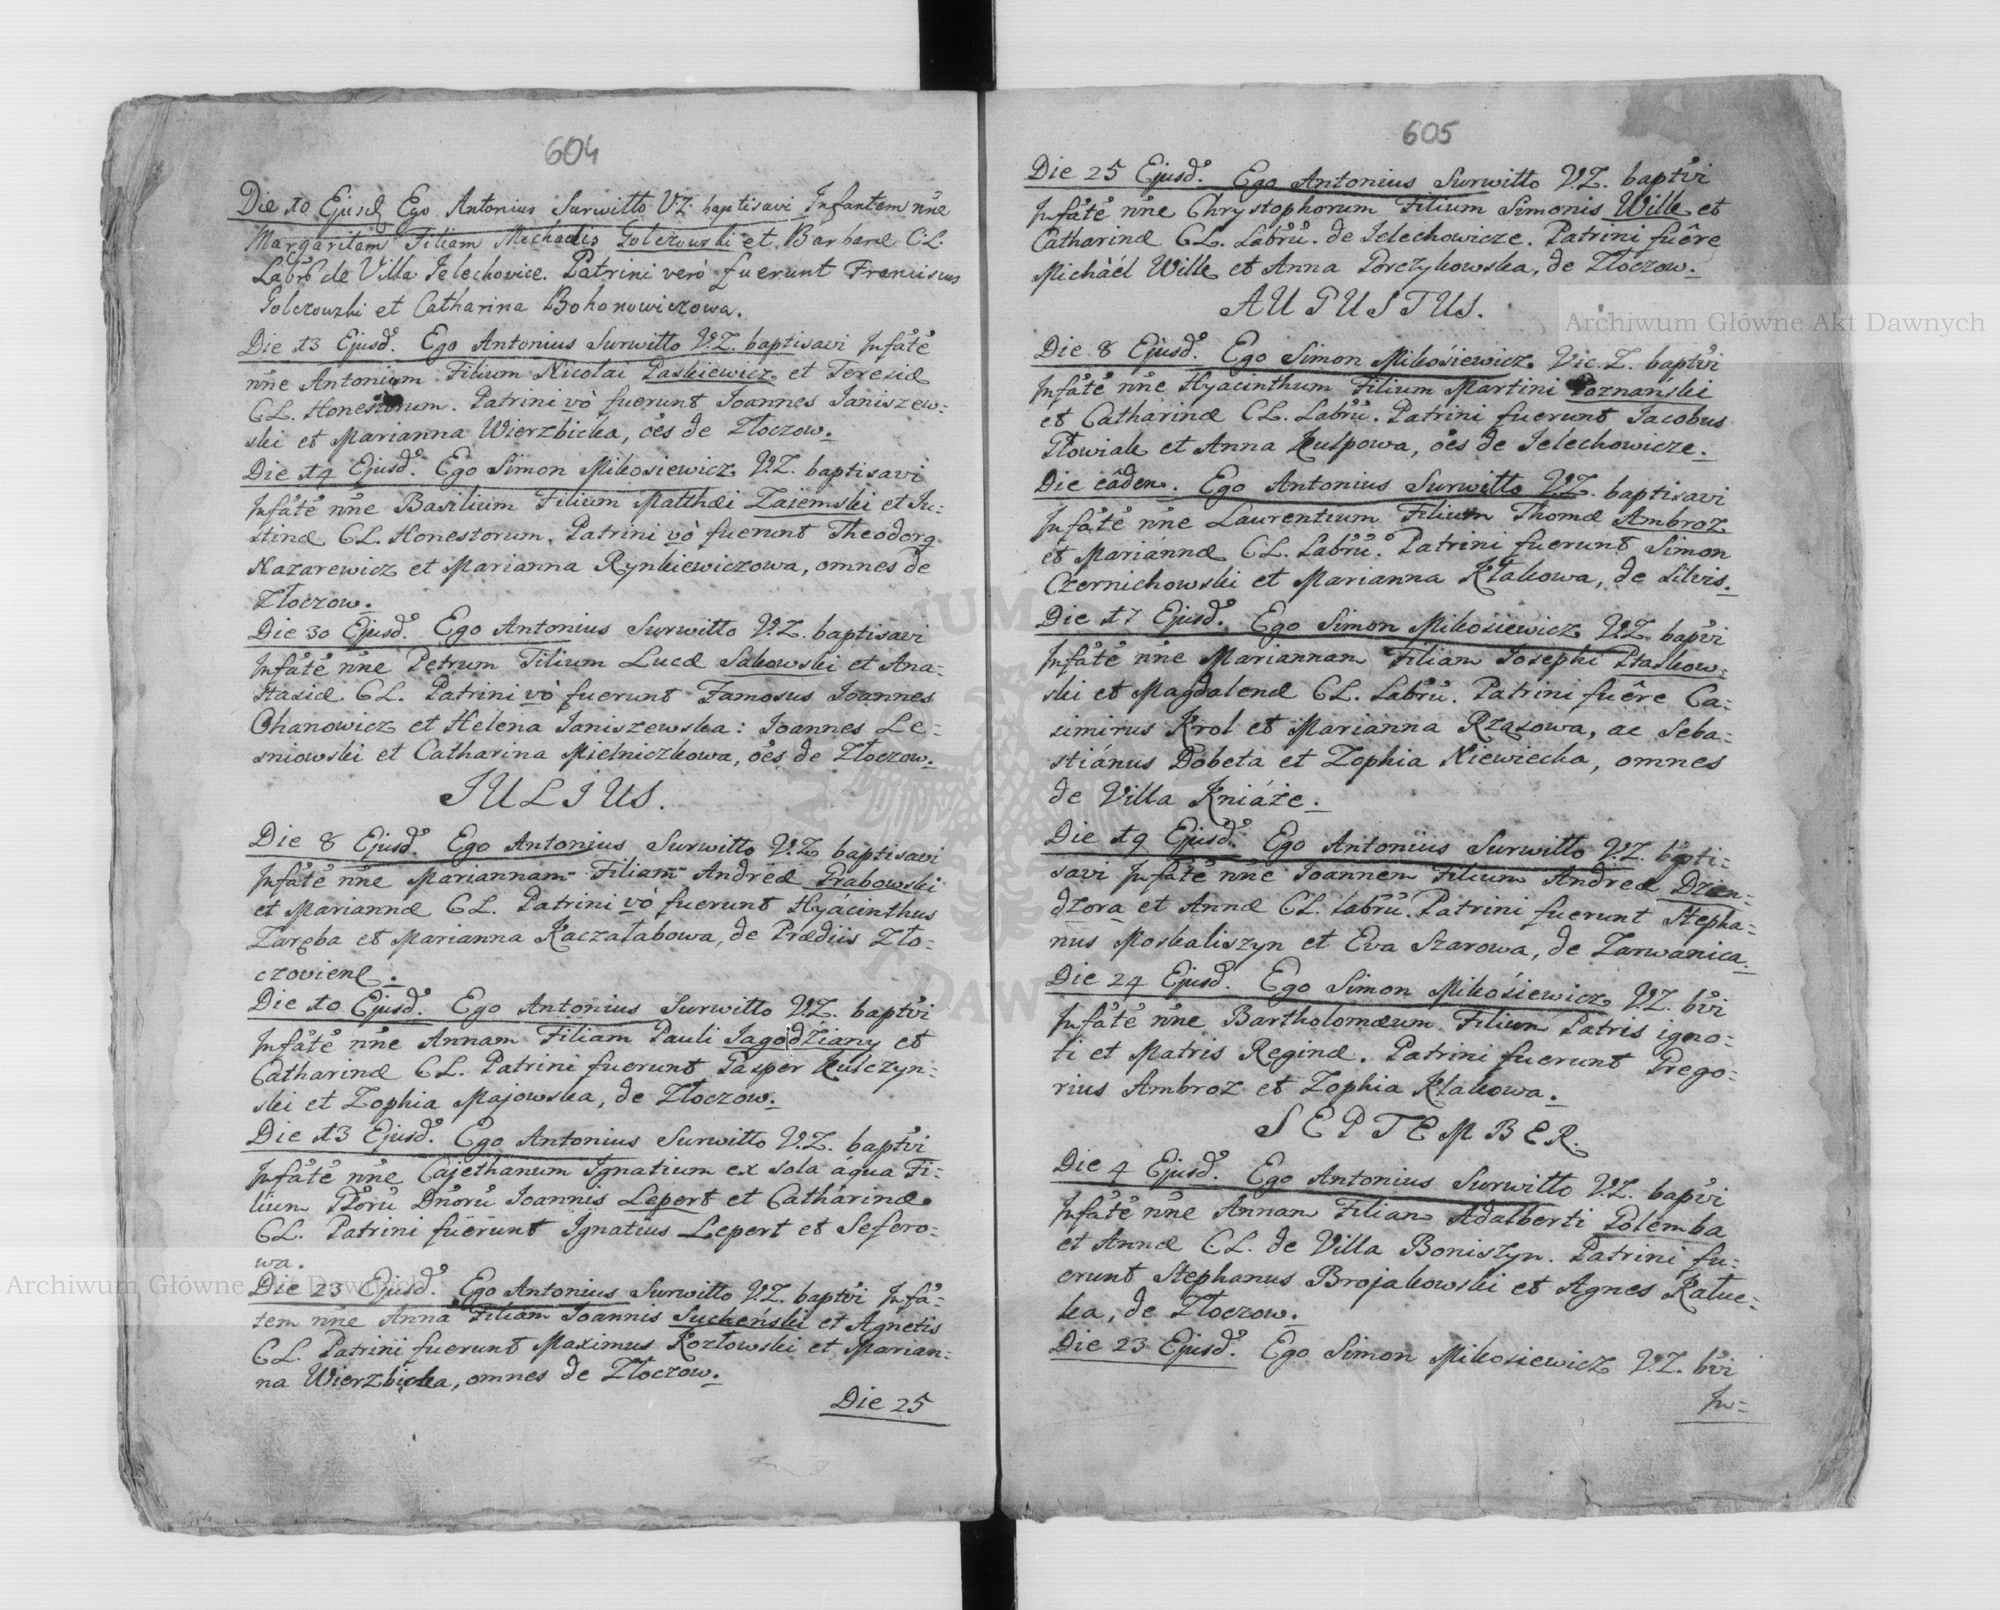 604
Die 10 Ejusd Ego Antonius Surwitto V.Z. baptisavi Infantem nn̄e
Margaritam Filiam Michaelis Golczowski et Barbaræ C.L.
Labōr de Villa Jelechovice. Patrini verò fuerunt Franciscus
Golczowski et Catharina Bohonowiczowa.
Die 13 Ejusd. Ego Antonius Surwitto V.Z. baptisavi Infātē
nn̄e Antonium Filium Nicolai Paskiewicz et Teresiæ
C.L. Honestorum. Patrini vò fuerunt Joannes Janiszew=
ski et Marianna Wierzbicka, oēs de Złoczow.
Die 14 Ejusd. Ego Simon Mikosiewicz V.Z. baptisavi
Infātē nn̄e Basilium Filium Matthæi Zaiemski et Ju=
stinæ C.L. Honestorum. Patrini vò fuerunt Theodorq
Nazarewicz et Marianna Rynkiewiczowa, omnes de
Złoczow.
Die 30 Ejusd. Ego Antonius Surwitto V.Z. baptisavi
Infātē nn̄e Petrum Filium Lucæ Sakowski et Ana=
stasiæ C.L. Patrini vò fuerunt Famosus Joannes
Ohanowicz et Helena Janiszewska: Joannes Le=
sniowski et Catharina Mielniczkowa, oēs de Złoczow.
JULIUS.
Die 8 Ejusd. Ego Antonius Surwitto V.Z. baptisavi
Infātē nn̄e Mariannam Filiam Andreæ Grabowski
et Mariannæ C.L. Patrini vò fuerunt Hyácinthus
Zaręba et Marianna Kaczałabowa, de Prædiis Zło=
czovien̄.
Die 10 Ejusd. Ego Antonius Surwitto V.Z. baptvi
Infātē nn̄e Annam Filiam Pauli Jagodziany et
Catharinæ C.L. Patrini fuerunt Gasper Kulczyn=
ski et Zophia Majowska, de Złoczow.
Die 13 Ejusd. Ego Antonius Surwitto V.Z. baptvi
Infātē nn̄e Cajethanum Ignatium ex sola áqua Fi=
lium Gōrū Dnōrū Joannis Lepert et Cathárinæ
C.L. Patrini fuerunt Ignatius Lepert et Sefero=
wa.
Die 23 Ejusd. Ego Antonius Surwitto V.Z. baptvi Infā=
tem nn̄e Annā Filiam Joannis Sucheński et Agnetis
C.L. Patrini fuerunt Maximus Kozłowski et Marian=
na Wierzbicka, omnes de Złoczow.
Die 25
605
Die 25 Ejusd. Ego Antonius Surwitto V.Z. baptvi
Infātē nn̄e Chrystophorum Filium Simonis Wille et
Catharinæ C.L. Labrū. de Jelechowicze. Patrini fuêre
Micháél Wille et Anna Porczykowska, de Złoczow.
AUGUSTUS.
Die 8 Ejusd. Ego Simon Mikósiewicz Vic.Z. baptvi
Infātē nn̄e Hyacinthum Filium Martini Poznański
et Catharinæ C.L. Labrū. Patrini fuerunt Jacobus
Głowiak et Anna Kulpowa, oēs de Jelechowicze.
Die eâdem. Ego Antonius Surwitto V.Z. baptisavi
Infātē nn̄e Laurentium Filium Thomæ Ambroz
et Mariánnæ C.L. Labrū. Patrini fuerunt Simon
Czernichowski et Marianna Kłakowa, de Silvis.
Die 17 Ejusd. Ego Simon Mikosiewicz V.Z. bapvi
Infātē nn̄e Mariannam Filiam Josephi Ptaskow=
ski et Magdalenæ C.L. Labrū. Patrini fuêre Ca=
simirus Krol et Marianna Rząsowa, ac Seba=
stiánus Dobeta et Zophia Niewiecka, omnes
de Villa Kniáże.
Die 19 Ejusd. Ego Antonius Surwitto V.Z. bapti=
savi Infātē nn̄e Joannem Filium Andreæ Dzien=
dzora et Annæ C.L. Labrū. Patrini fuerunt Stepha=
nus Moskaliszyn et Eva Szarowa, de Zarwanica.
Die 24 Ejusd. Ego Simon Mikósiewicz V.Z. bvi
Infātē nn̄e Bartholomæum Filium Patris igno=
ti et Matris Reginæ. Patrini fuerunt Grego=
rius Ambroz et Zophia Kłakowa.
SEPTEMBER.
Die 4 Ejusd. Ego Antonius Surwitto V.Z. bapvi
Infātē nn̄e Annam Filiam Adalberti Golemba
et Annæ C.L. de Villa Boniszyn. Patrini fu=
erunt Stephanus Brojakowski et Agnes Kałuc=
ka, de Złoczow.
Die 23 Ejusd. Ego Simon Mikosiewicz V.Z. bvi
In=
Archiwum Główne Akt Dawnych
Archiwum Główne Akt Dawnych